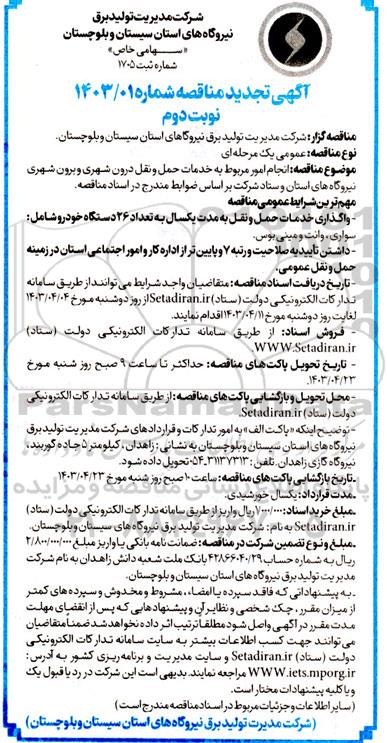 شرکت مدیریت تولید برق
نیروگاه های استان سیستان و بلوچستان
«سهامی خاص»
شماره ثبت ۱۷۰۵
آگهی تجدید مناقصه شماره ۱۴۰۳/۰۱
نوبت دوم
مناقصه گزار: شرکت مدیریت تولید برق نیروگاهای استان سیستان وبلوچستان.
نوع مناقصه: عمومی یک مرحله ای
موضوع مناقصه: انجام امور مربوط به خدمات حمل و نقل درون شهری و برون شهری
نیروگاه های استان و ستاد شرکت بر اساس ضوابط مندرج در اسناد مناقصه.
مهم ترین شرایط عمومی مناقصه
- واگذاری خدمات حمل و نقل به مدت یکسال به تعداد ۲۶ دستگاه خودرو شامل:
سواری، وانت و مینی بوس.
- داشتن تأییدیه صلاحیت رتبه ۷ و پایین تر از اداره کار و امور اجتماعی استان در زمینه
حمل و نقل عمومی
- تاریخ دریافت اسناد مناقصه: متقاضیان واجد شرایط می توانند از طریق سامانه
تدارکات الکترونیکی دولت (ستاد) Setadiran.ir از روز دوشنبه مورخ ۱۴۰۳/۰۴/۰۴
لغایت روز دوشنبه مورخ ۱۴۰۳/۰۴/۱۱ اقدام نمایند.
- فروش اسناد: از طریق سامانه تدارکات الکترونیکی دولت (ستاد)
WWW.Setadiran.ir
- تاریخ تحویل پاکت های مناقصه: حداکثر تا ساعت ۹ صبح روز شنبه مورخ
۱۴۰۳/۰۴/۲۳.
- محل تحویل و بازگشایی پاکت های مناقصه: از طریق سامانه تدارکات الکترونیکی
دولت (ستاد) Setadiran.ir.
- توضیح اینکه «پاکت الف» به امور تدارکات و قراردادهای شرکت مدیریت تولید برق
نیروگاه های استان سیستان و بلوچستان به نشانی: زاهدان، کیلومتر ۵ جاده گوربند،
نیروگاه گازی زاهدان. تلفن: ۳۱۱۳۷۳۱۳-۰۵۴ تحویل داده شود.
- تاریخ بازگشایی پاکت های مناقصه: ساعت ۱۰ صبح روز شنبه مورخ ۱۴۰۳/۰۴/۲۳
- مدت قرارداد: یکسال خورشیدی.
- مبلغ خرید اسناد: ۷۰۰/۰۰۰ ریال واریز از طریق سامانه تدارکات الکترونیکی دولت (ستاد)
Setadiran.ir به نام: شرکت مدیریت تولید برق نیروگاه های سیستان و بلوچستان.
- مبلغ و نوع تضمین شرکت در مناقصه: ضمانت نامه بانکی یا واریز مبلغ ۲/۸۰۰/۰۰۰/۰۰۰
ریال به شماره حساب ۴۲۸۶۶۰۴۰/۲۹ بانک ملت شعبه دانش زاهدان به نام شرکت
مدیریت تولید برق نیروگاه های استان سیستان و بلوچستان.
- به پیشنهاداتی که فاقد سپرده یا امضاء، مشروط و مخدوش و سپرده های کمتر
از میزان مقرر، چک شخصی و نظایر آن و پیشنهادهایی که پس از انقضای مهلت
مدت مقرر در آگهی واصل شود مطلقا ترتیب اثر داده نخواهد شد ضمنا متقاضیان
می توانند جهت کسب اطلاعات بیشتر به سایت سامانه تدارکات الکترونیکی
دولت (ستاد) Setadiran.ir و سایت مدیریت و برنامه ریزی کشور به آدرس:
WWW.iets.mporg.ir مراجعه نمایند. بدیهی است این شرکت در رد یا قبول یک
و یا کلیه پیشنهادات مختار است.
(سایر اطلاعات و جزئیات مربوط در اسناد مناقصه مندرج است)
(شرکت مدیریت تولید برق نیروگاه های استان سیستان و بلوچستان)